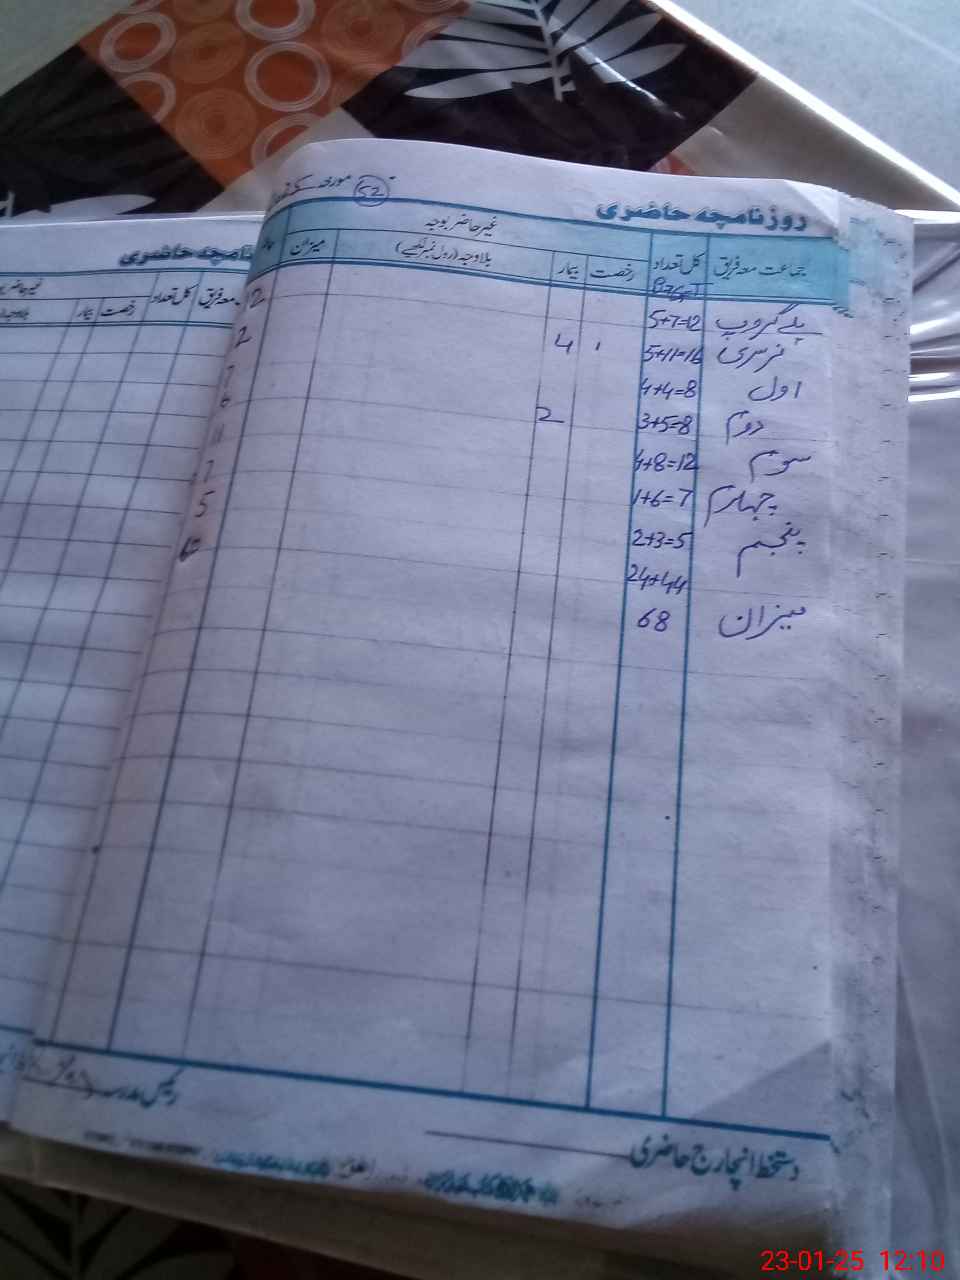 روزنامچہ حاضری
52 مورخہ
جماعت معہ فریق کل تعداد رخصت بیمار غیر حاضر بوجہ بلا وجہ (رول نمبر لکھیے) میزان
B+G=T
پلے گروپ 5+7=12 12
نرسری 5+11=16 ١ 4
اول 4+4=8 7
دوم 3+5=8 2 6
سوم 4+8=12 11
چہارم 1+6=7 7
پنجم 2+3=5 5
24+44
میزان 68
دستخط انچارج حاضری
رئیس مدرسہ
روزنامچہ حاضری
معہ فریق کل تعداد رخصت بیمار
23-01-25 12:10